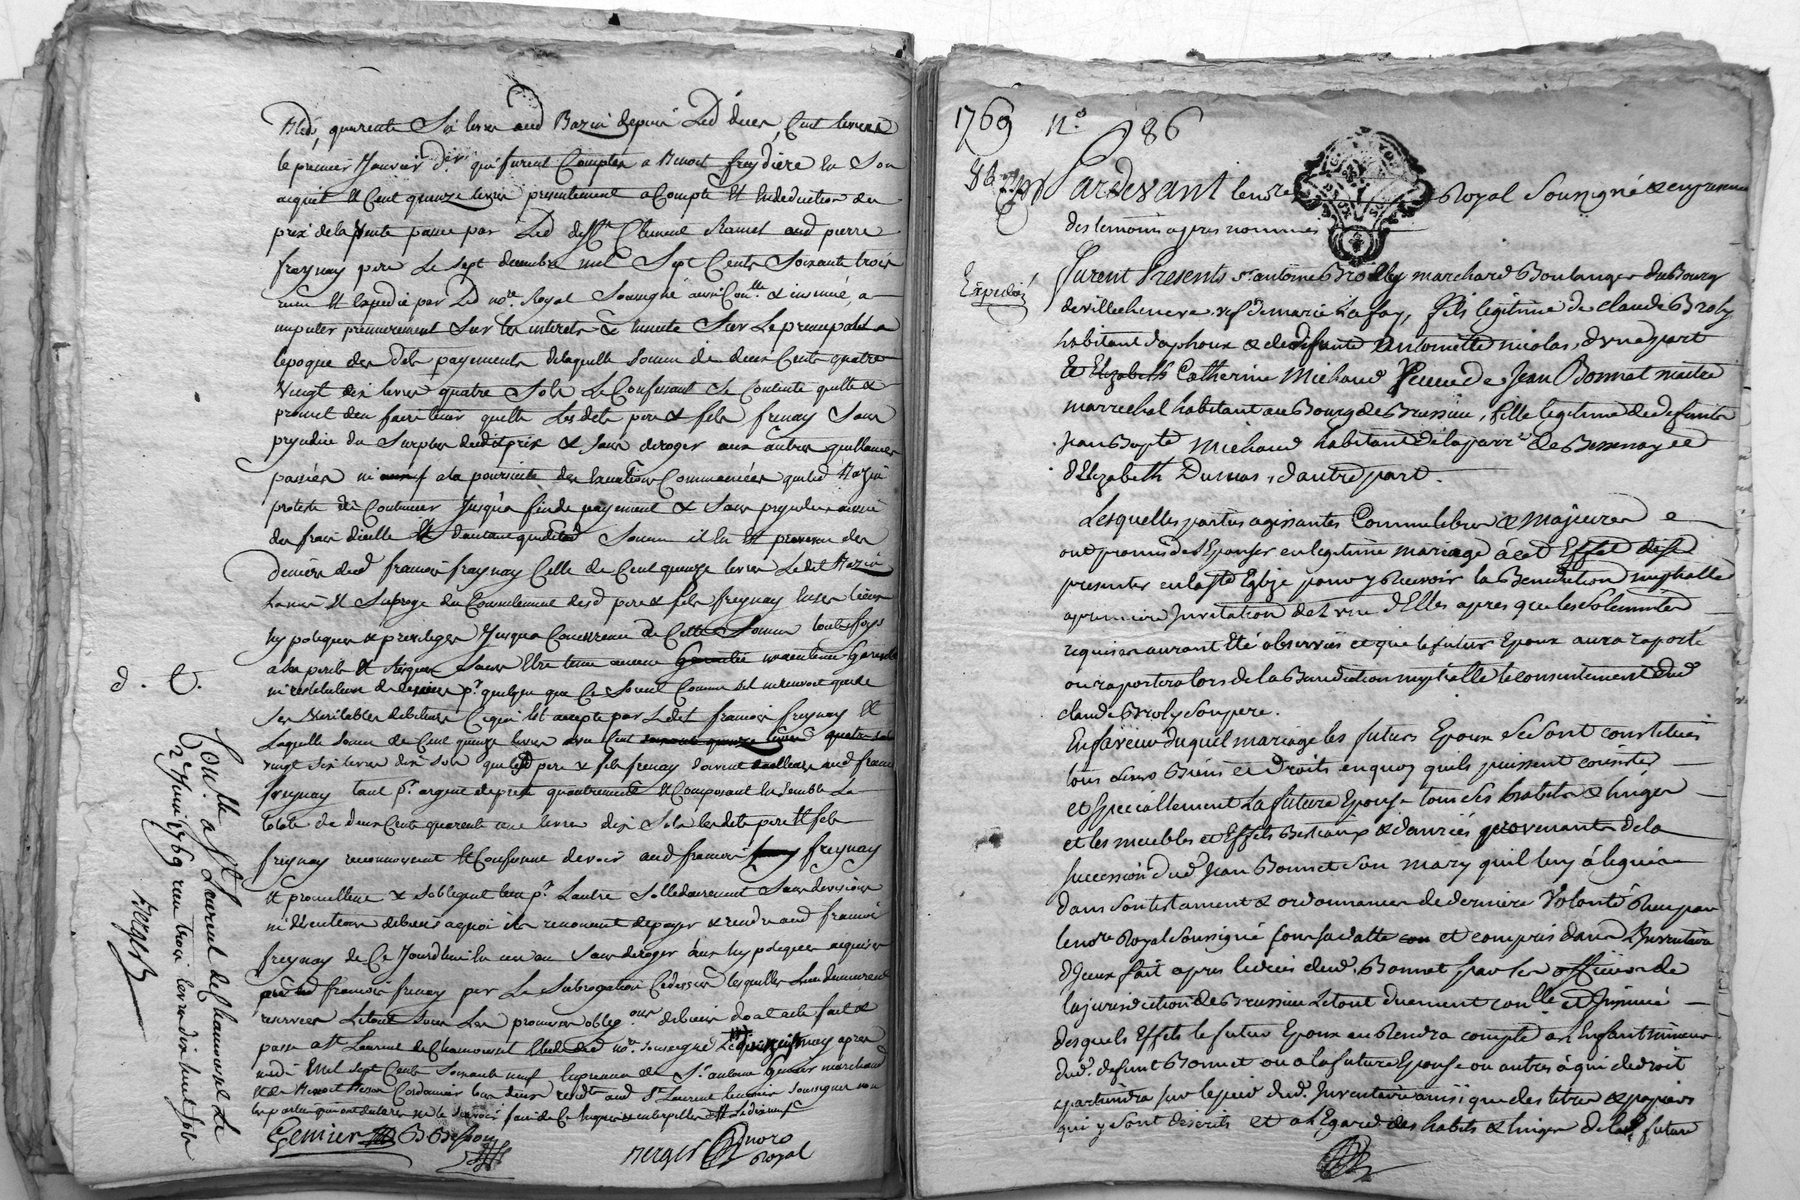 bled, quarente Six livres aud Bazin depuis Led deces, Cent livres
le premier Janvier der qui furent Comptés a Benoit freydière en Son
acquit Et Cent quinze livres presentement a Compte Et En deduction du
prix de la vente passé par Led Clement Ramel aud pierre
freynay pere Le Sept decembre mil Sept Cents Soixante trois
reçu Et Expedié par Led nore Royal Soussigné aussi Conllé & insinué, a
imputer premierement Sur les interets & Ensuite Sur Le principal a
l'epoque des dits payements de laquelle Somme de deux Cents quatre
vingt dix livres quatre Sols Le Confessant Se Contente quitte &
promet d'en faire tenir quitte Lesdits pere & fils freynay Sans
prejudice du Surplus dudit prix & Sans deroger aux autres quittances
passées ni a la poursuite des Executions Commencées que led Bazin
proteste de Continuer Jusqu'a fin de payement & Sans prejudice aussi
des frais d'icelle Et d'autant que Somme il En Est provenu des
deniers dud francois freynay Celle de Cent quinze livres Ledit Bazin
la Subroge du Consentement desd pere & fils freynay En Ses lieux
hypoteques & privileges Jusqua Concurrence de Cette Somme toutefois
a Ses perils Et risques Sans Etre tenu aucune Garantie
ni restitution de deniers pr quelque que Ce Soit
Ses veritables debiteurs Ce qui Est accepté par Ledit francois freynay Et
Laquelle Somme de Cent quinze livres avec Cent
vingt Six livres dix Sols que lesd pere & fils freynay doivent aud francois
freynay tant pr argent de preté qu'autrement Et Composant Ensemble Le
total de deux Cents quarente une livres dix Sols lesdits pere Et fils
freynay reconnoissent Et Confessent devoir aud francois freynay
Et promettent & S'obligent l'un pr L'autre Sollidairement Sans division
ni discution de biens a quoi ils renoncent de payer & rendre aud francois
freynay de Ce Jourdhui En un an Sans deroger aux hypoteques acquises
aud francois freynay par La Subrogation Ci dessus lesquelles Lui demeurent
reservées Le tout Sous Les promesses obligons de biens fait &
passé a St Laurent de Chamousset Etude dud nore Soussigné Le may apres
midi Mil Sept Cents Soixante neuf En presence de Sr antoine Gemier marchand
Et de Benoit Besson Cordonnier tous deux residts aud St Laurent temoins Soussignés non
les parties qui ont declaré ne le Savoir faire de Ce Enquises & interpellées
Gemier B Besson
Berger Nore
Royal
d. C.
Conllé a St Laurent de Chamousset Le
2e Juin 1769 reçu trois livres dix huit Sols
Berger
1769 No 186
86
Pardevant le nore Royal Soussigné & en presence
des temoins apres nommés
Expedié
furent Presents Sr antoine Broilly marchand Boulanger du Bourg
de villechenève, vf de marie Lafay, fils legitime de claude Broly
habitant d'aphoux & de defunte antoinette nicolas, d'une part
Et Elizabeth Catherine Michaud Veuve de Jean Bonnat maitre
marrechal habitant au Bourg de Brussieu, fille legitime de defunts
jean Bapte Michaud habitant de la parre de Bessenay et
d'Elizabeth Dumas, d'autre part.
Lesquelles parties agissantes Comme libres & majeures
ont promis de S'Epouser en legitime mariage à cet Effet de se
presenter en la Ste Eglize pour y recevoir la Benediction nuptialle
a premiere Invitation de L'une d'Elles apres que les Solemnités
requises auront Eté observées et que le futur Epoux aura raporté
ou raportera lors de la Benediction nuptialle le consentement dud
claude Broly Son pere.
En faveur du quel mariage les futurs Epoux Se Sont constitués
tous Leurs Biens et droits en quoy qu'ils puissent consister
et Specialement La future Epouse tous Ses habits & linges
et les meubles et Effets Bestiaux & danrées provenants de la
succession dud Jean Bonnet son mary qu'il luy à legué
dans Son testament & ordonnance de derniere Volonté Reçu par
le nore Royal Soussigné Sous Sa datte et compris dans L'Inventaire
d'Iceux fait apres le deces dud. Bonnet par les officiers de
la jurisdiction de Brussieu Le tout duement conllé et Insinué
desquels Effets le futur Epoux en Rendra compte a L'Enfant mineur
dud. defunt Bonnet ou a la future Epouse ou autres à qui de droit
apartiendra sur le pied dud. Inventaire ainsi que des titres & papiers
qui y Sont décrits et a L'Egard des habits & linges de lad. future